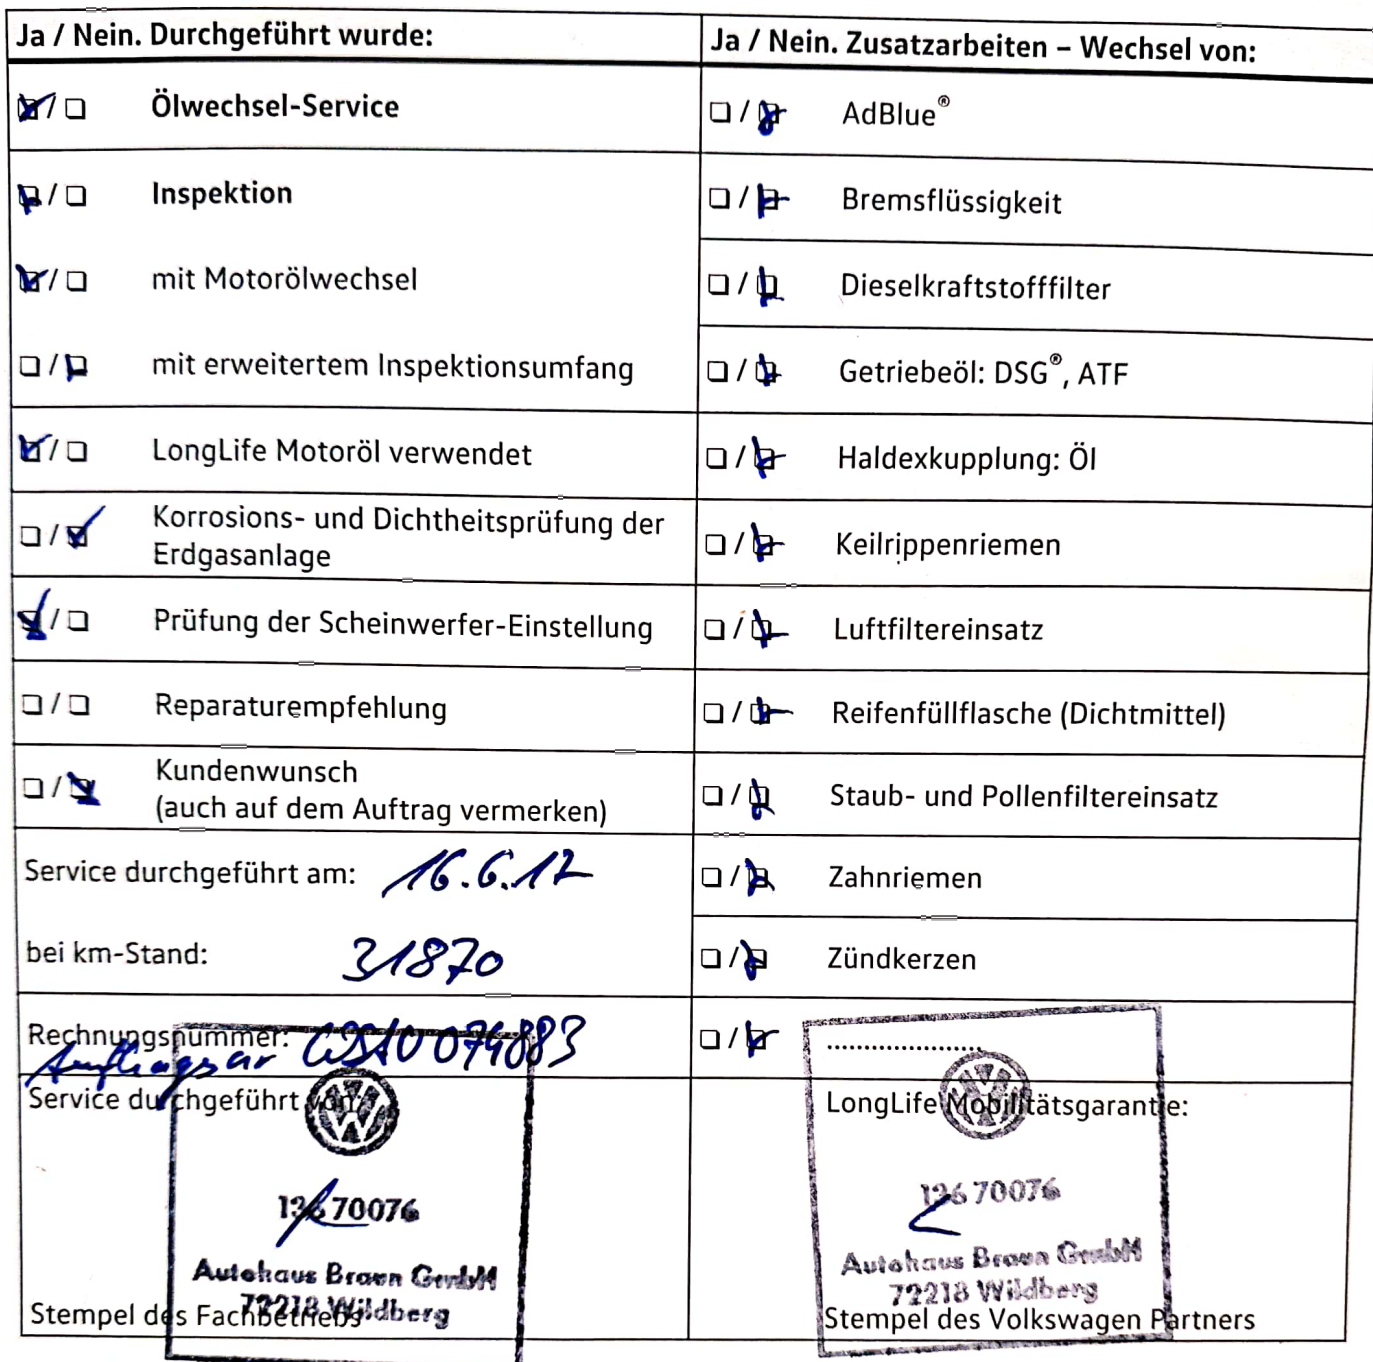 Ja / Nein. Durchgeführt wurde:
Ölwechsel-Service
Inspektion
mit Motorölwechsel
mit erweitertem Inspektionsumfang
LongLife Motoröl verwendet
Korrosions- und Dichtheitsprüfung der
Erdgasanlage
Prüfung der Scheinwerfer-Einstellung
Reparaturempfehlung
Kundenwunsch
(auch auf dem Auftrag vermerken)
Service durchgeführt am: 16.6.17
bei km-Stand: 31870
Rechnungsnummer:
Service durchgeführt von:
136 70076
Autohaus Braun GmbH
72218 Wildberg
Stempel des Fachbetriebs
Ja / Nein. Zusatzarbeiten – Wechsel von:
AdBlue®
Bremsflüssigkeit
Dieselkraftstofffilter
Getriebeöl: DSG®, ATF
Haldexkupplung: Öl
Keilrippenriemen
Luftfiltereinsatz
Reifenfüllflasche (Dichtmittel)
Staub- und Pollenfiltereinsatz
Zahnriemen
Zündkerzen
......................
LongLife Mobilitätsgarantie:
136 70076
Autohaus Braun GmbH
72218 Wildberg
Stempel des Volkswagen Partners